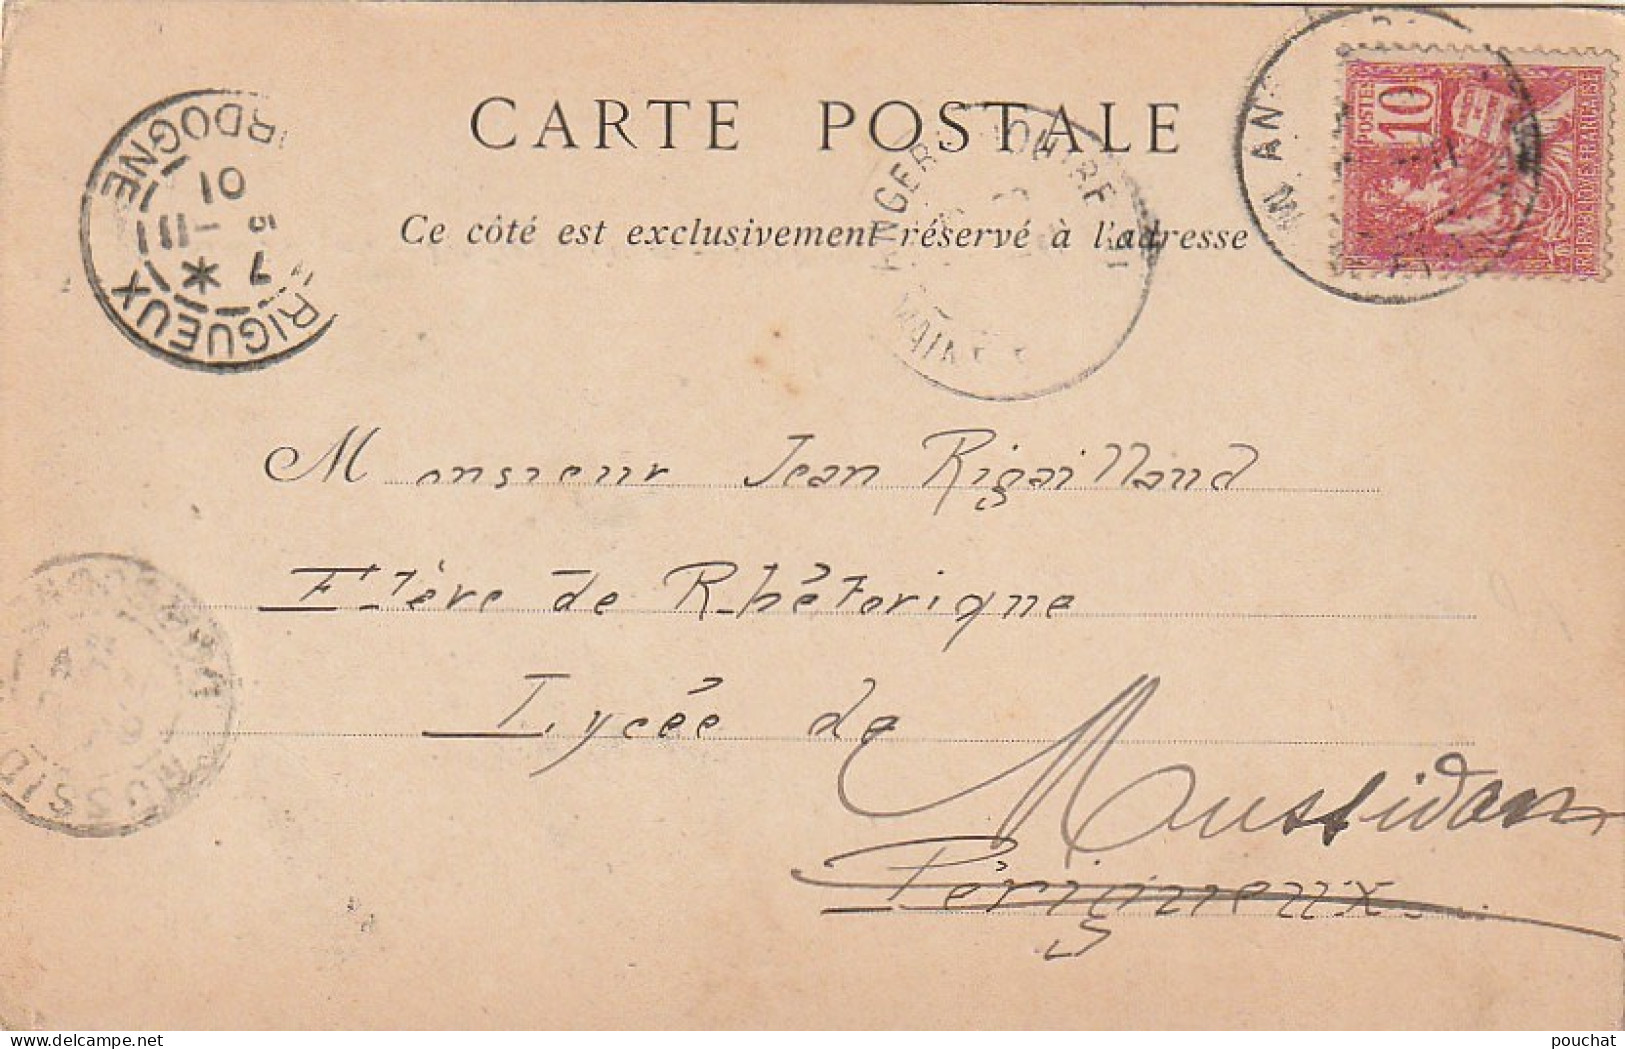 CARTE POSTALE
Ce côté est exclusivement réservé à l'adresse
POSTES
10
REPUBLIQUE FRANCAISE
RIGUEUX
RDOGNE
7
5 -III
01
ANGERS
MAINE
Monsieur Jean Rigaillaud
Elève de Rhétorique
Lycée de
Mussidan
Périgueux
MUSSID
www.delcampe.net
pouchat